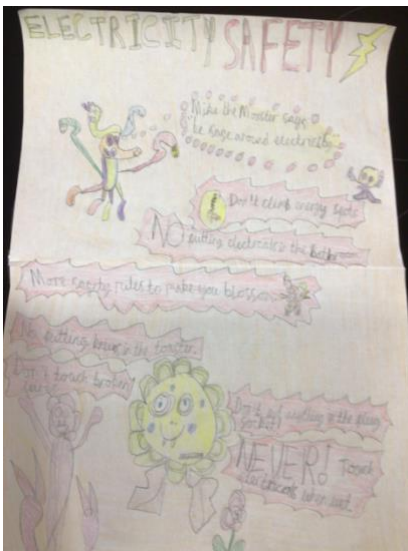 ELECTRICITY SAFETY
Mike the Monster says
be safe around electricity
Don't climb energy
NO putting electronics in the bathroom
More safety rules to make you blossom
No putting knives in the toaster.
Don't touch broken
Don't put anything in the plug
socket!
NEVER! Touch
electronics when wet.